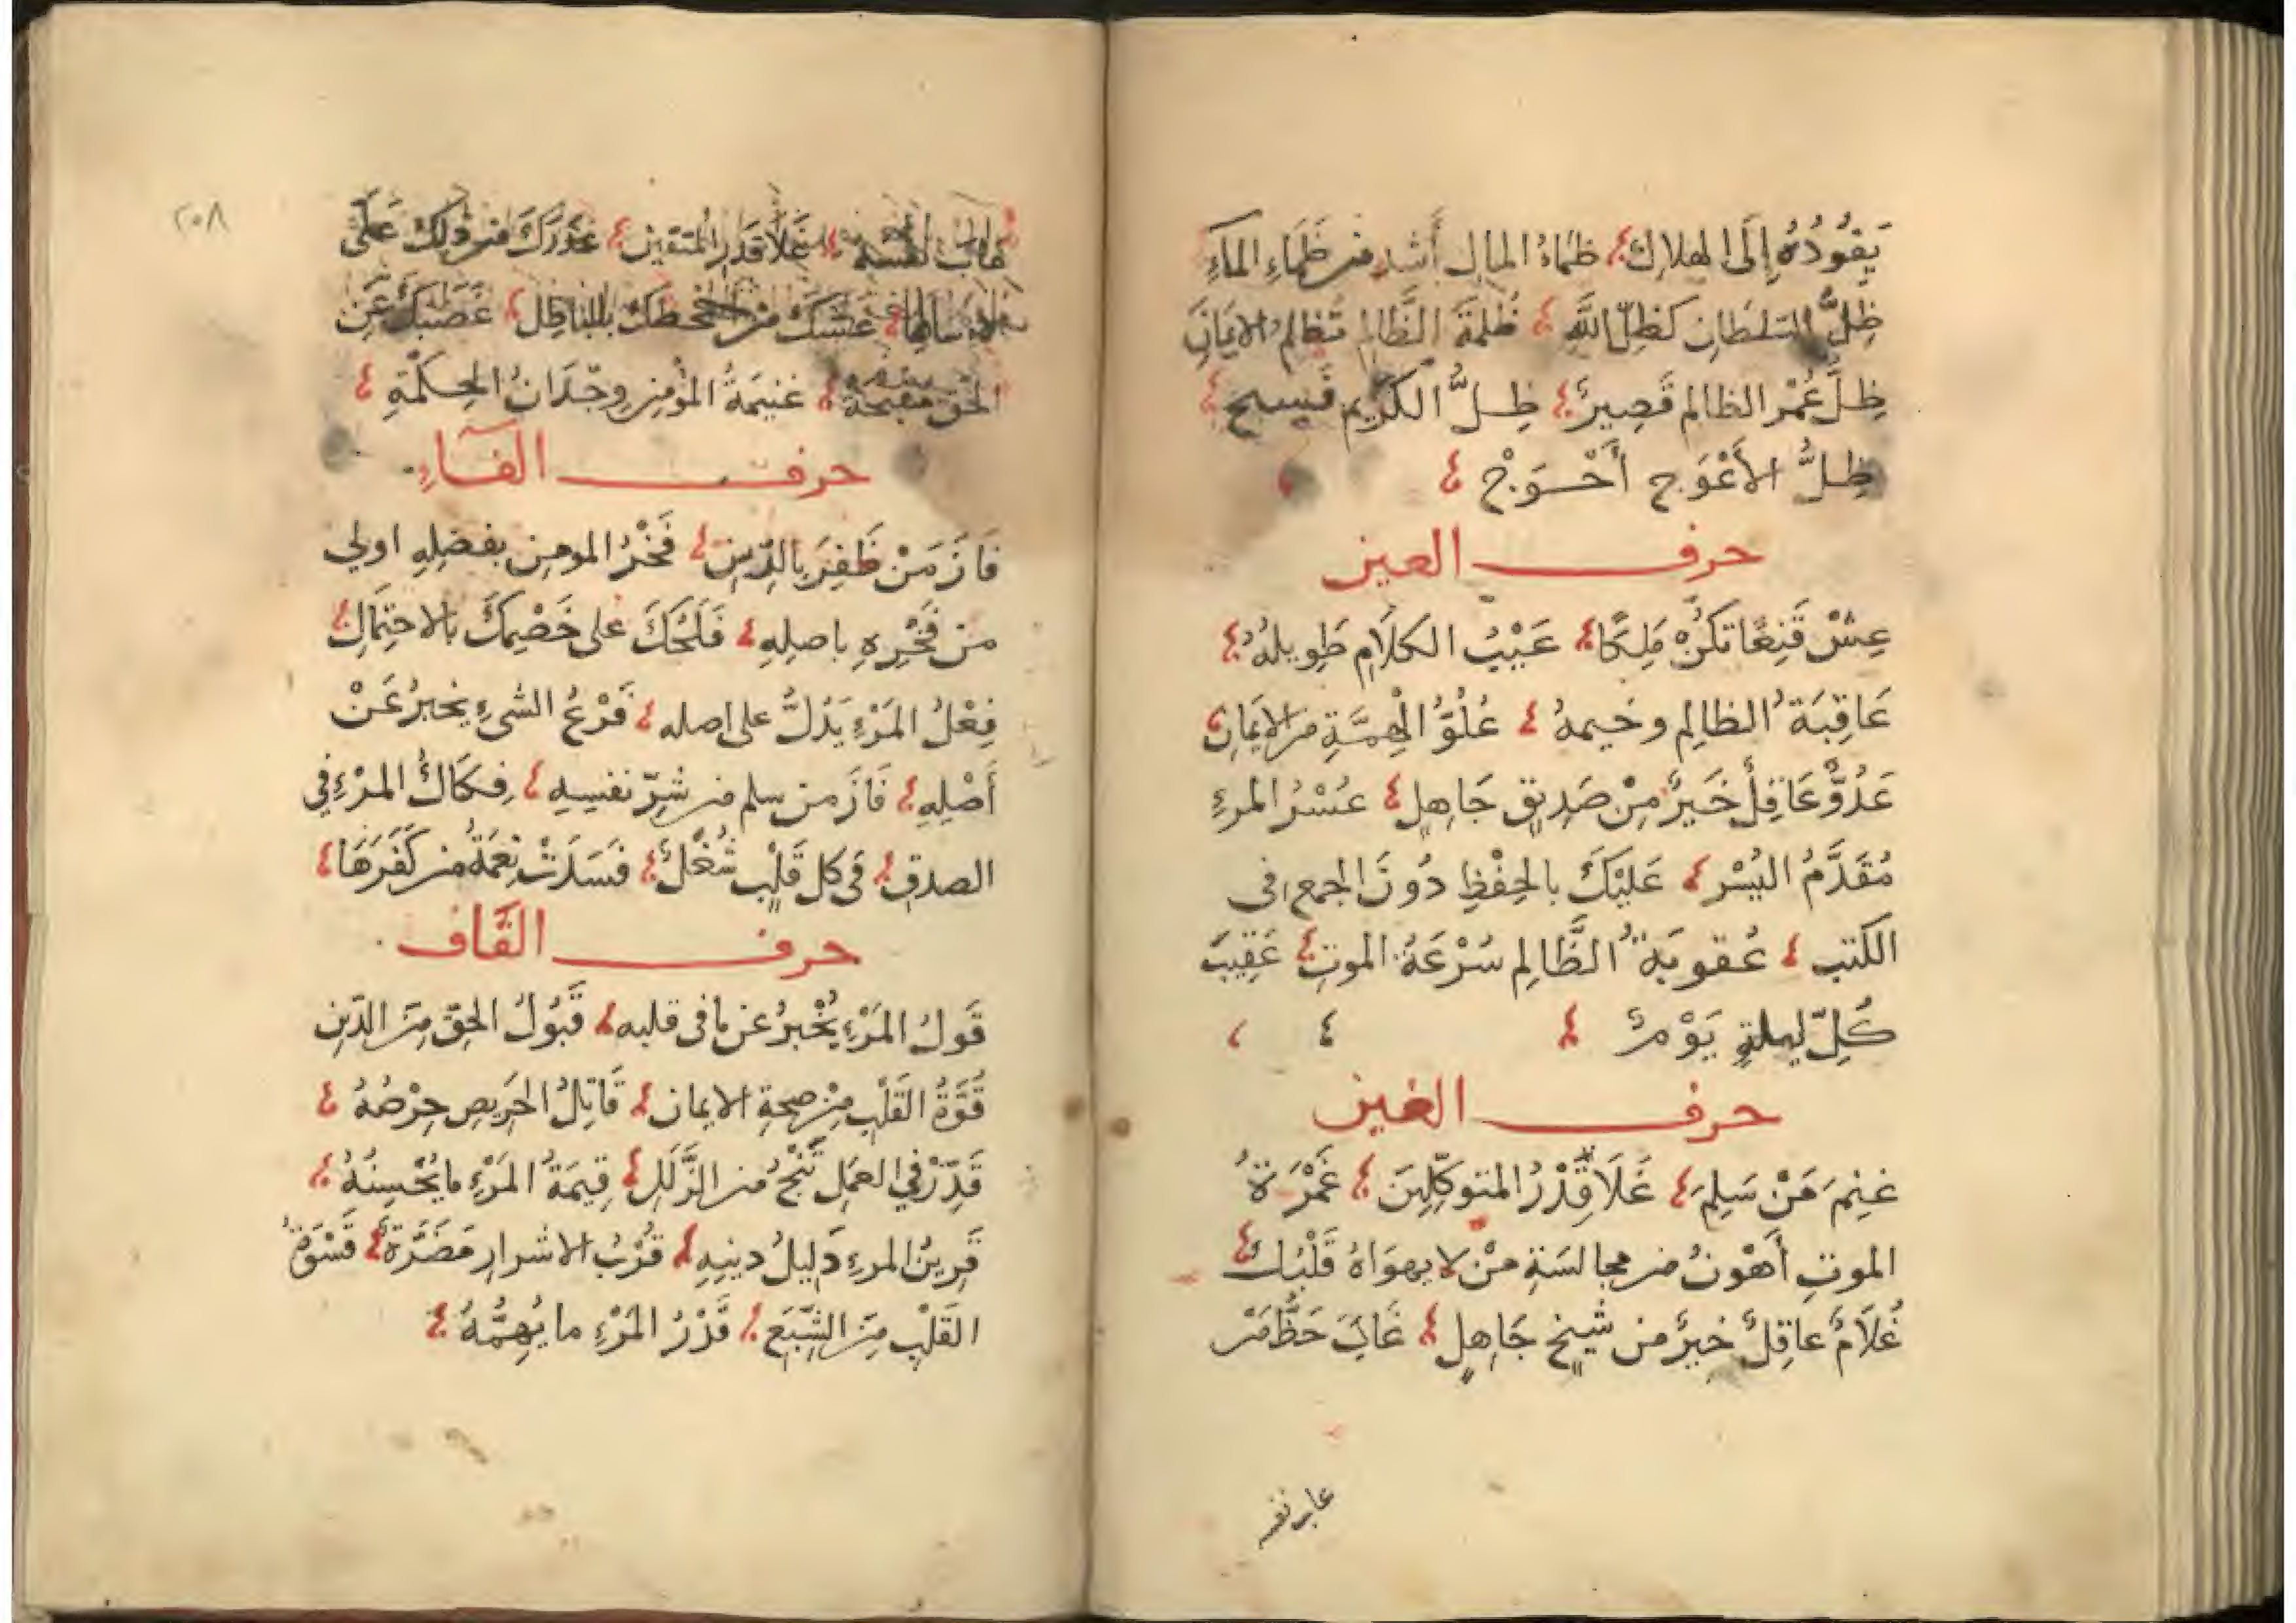 يَقُودُهُ إِلَى الهلاك ظمَاءُ المال أَشد من ظَمَاءِ الماءِ
ظِلُّ السَلطَان كَظِلّ اللَّهِ ظُلمَةَ الظَّالِم تُظلم الايمَانَ
ظِلَّ عُمْر الظالم قَصِيرٌ ظِلُّ الكَرِيم فَسِيح
ظِلُّ الأَعْوَج أَعْوَجْ
حرف العين
عِشْ قَنِعًا تَكُنْ مَلِكًا عَيْبُ الكلَام طَوِيلُهُ
عَاقِبَةُ الظالِم وخيمهُ عُلُوُّ الْهِمَّةِ من الإيمَانِ
عَدُوٌّ عَاقِلٌ خَيرٌ مِنْ صَدِيقٍ جَاهِلٍ عُسْرُ المرءِ
مُقَدَّمُ اليُسْر عَلَيْكَ بالحِفْظِ دُونَ الجمع في
الكتب عُقوبَةُ الظَّالِم سُرْعَةُ الموتِ عَقِيبَ
كُلِّ ليلةٍ يَوْمٌ
حرف الغين
غنِمَ مَنْ سَلِمَ غَلَا قَدْرُ المتوكِّلِينَ غَمْرَةُ
الموتِ أَهْونُ من مجالسَةِ منْ لا يهوَاهُ قَلْبُك
غُلَامٌ عاقِلٌ خيرٌ من شيخٍ جَاهِلٍ غَابَ حَظُّ مَنْ
عاب نفسه
٢٠٨
عاب نفسه غَلَا قَدَر المُتقين غدرَكَ من دَلكَ عَلَى
غَشَّكَ مَنْ بالباطِل غَضَبكَ عَن
الحَق مقبحَةٌ غنيمَةُ المؤمِنِ وجْدَانُ الحِكمَةِ
حرف الفَاءِ
فَازَ مَنْ ظَفِرَ بِالدِّينِ فَخْرُ المومِن بفضلِهِ اولي
من فَخْرِهِ باصلِهِ فَلَحُكَ على خَصْمِكَ بالاحتِمَالِ
فِعْلُ المَرْءِ يَدُلُّ على اصله فَرْعُ الشيءِ يخبرُ عَنْ
أَصْلِهِ فَازَ من سلم من شرِّ نفسِهِ فِكَاكُ المرْءِ في
الصدقِ في كل قَلْبٍ شُغْلٌ فسَدَتْ نِعْمَةُ من كَفَرَهَا
حرف القَاف
قَولُ المَرْءِ يُخْبرُ عن ما في قلبه قَبُولُ الحقّ مِنَ الدّينِ
قُوَّةُ القَلْبِ مِنْ صِحةِ الايمان قَاتِلُ الحَرِيصِ حِرْصُهُ
قَدِّرْ في العمَلِ تَنْجُ من الزَّلَلِ قِيمَةُ المَرْءِ ما يُحْسِنُهُ
قَرِينُ المرءِ دَلِيلُ دينِهِ قُرْبُ الاشرارِ مَضَرَّةٌ قَسْوَةُ
القَلْبِ مِنَ الشّبَعِ قَدْرُ المَرْءِ ما يُهِمُّهُ